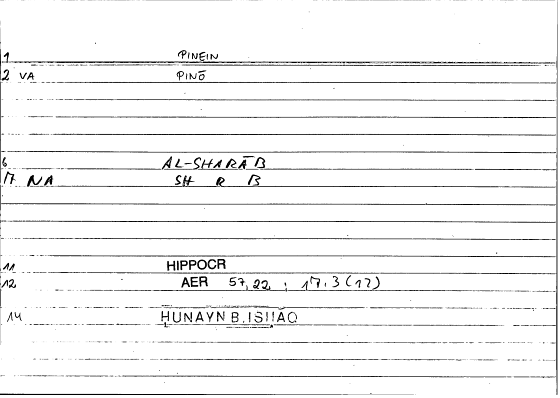 1 PINEIN
2 VA PINŌ
6 AL-SHARĀB
17 NA SH R B
11 HIPPOCR
12 AER 57,22 ; 17.3 (17)
14 ḤUNAYN B. ISḤĀQ